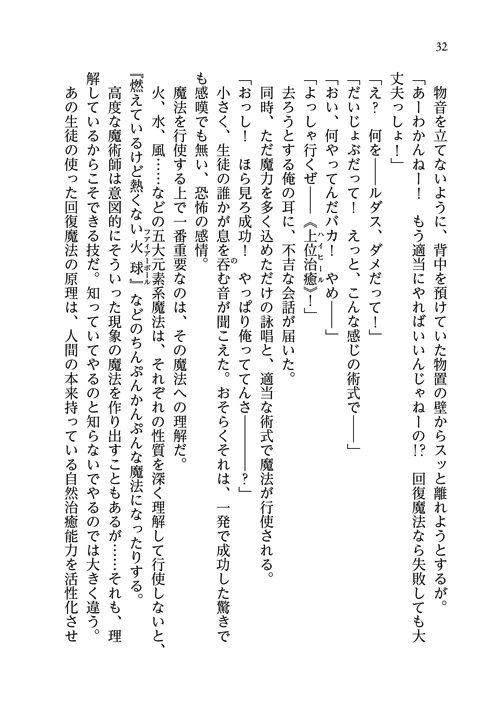 32
物音を立てないように、背中を預けていた物置の壁からスッと離れようとするが。
「あーわかんねー！　もう適当にやればいいんじゃねーの!?　回復魔法なら失敗しても大
丈夫っしょ！」
「え？　何を――ルダス、ダメだって！」
「だいじょぶだって！　えっと、こんな感じの術式で――」
「おい、何やってんだバカ！　やめ――」
「よっしゃ行くぜ――《上位治癒》！」
ハイヒール
去ろうとする俺の耳に、不吉な会話が届いた。
同時、ただ魔力を多く込めただけの詠唱と、適当な術式で魔法が行使される。
「おっし！　ほら見ろ成功！　やっぱり俺っててんさ――――？」
小さく、生徒の誰かが息を呑む音が聞こえた。おそらくそれは、一発で成功した驚きで
の
も感嘆でも無い、恐怖の感情。
魔法を行使する上で一番重要なのは、その魔法への理解だ。
火、水、風……などの五大元素系魔法は、それぞれの性質を深く理解して行使しないと、
『燃えているけど熱くない火球』などのちんぷんかんぷんな魔法になったりする。
ファイアーボール
高度な魔術師は意図的にそういった現象の魔法を作り出すこともあるが……それも、理
解しているからこそできる技だ。知っていてやるのと知らないでやるのでは大きく違う。
あの生徒の使った回復魔法の原理は、人間の本来持っている自然治癒能力を活性化させ